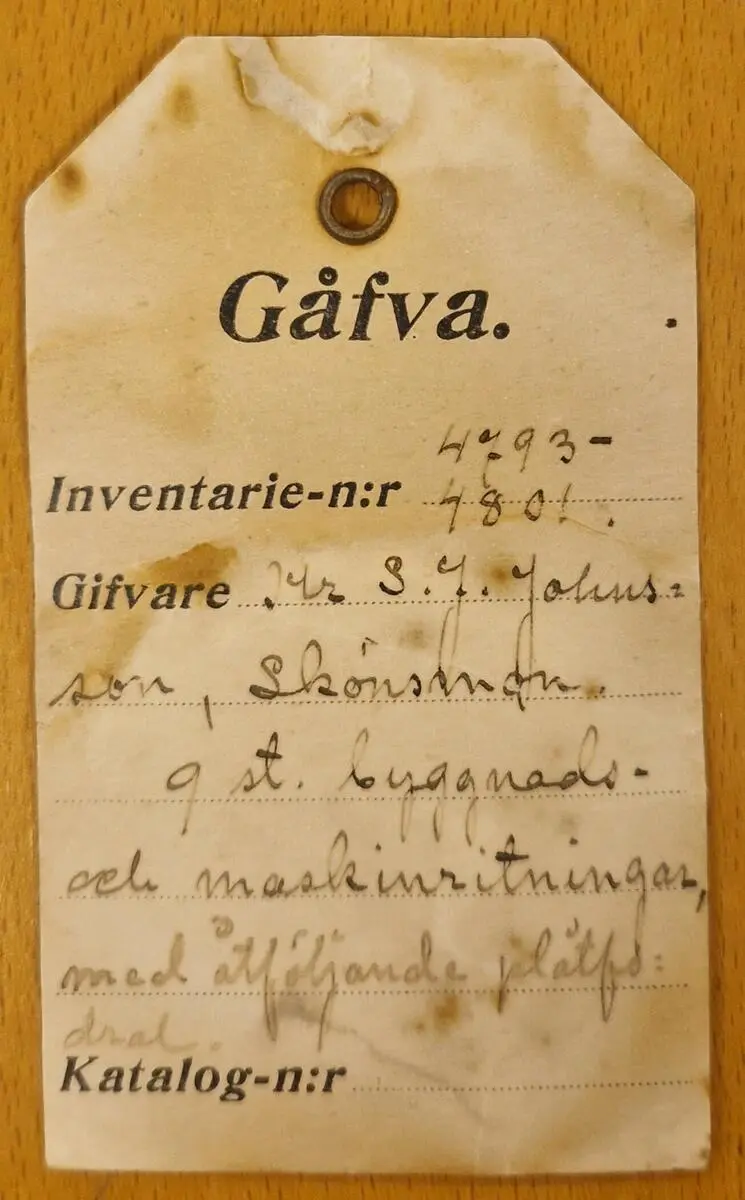 Gåfva.
4793-
Inventarie-n:r 4801.
Gifvare Hr S. J. Johns=
son, Skönsmon.
9 st. byggnads-
och maskinritningar,
med åtföljande plåtfo=
dral.
Katalog-n:r